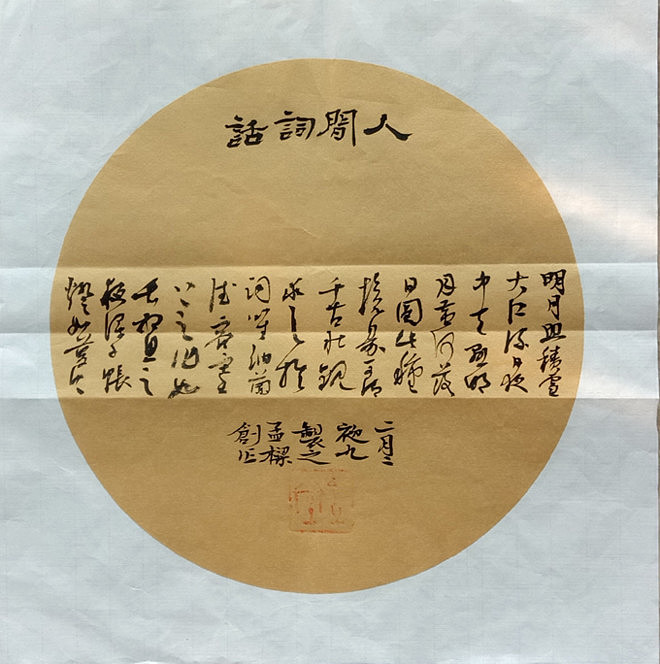 人間詞話
明月照積雪
大江流日夜
中天懸明
月黃河落
日圓此種
境界可謂
千古壯觀
求之於
詞唯納蘭
塞
上之作如
長相思之
夜深千帳
燈如夢令
二月二
夜九
製之
孟樑
創作